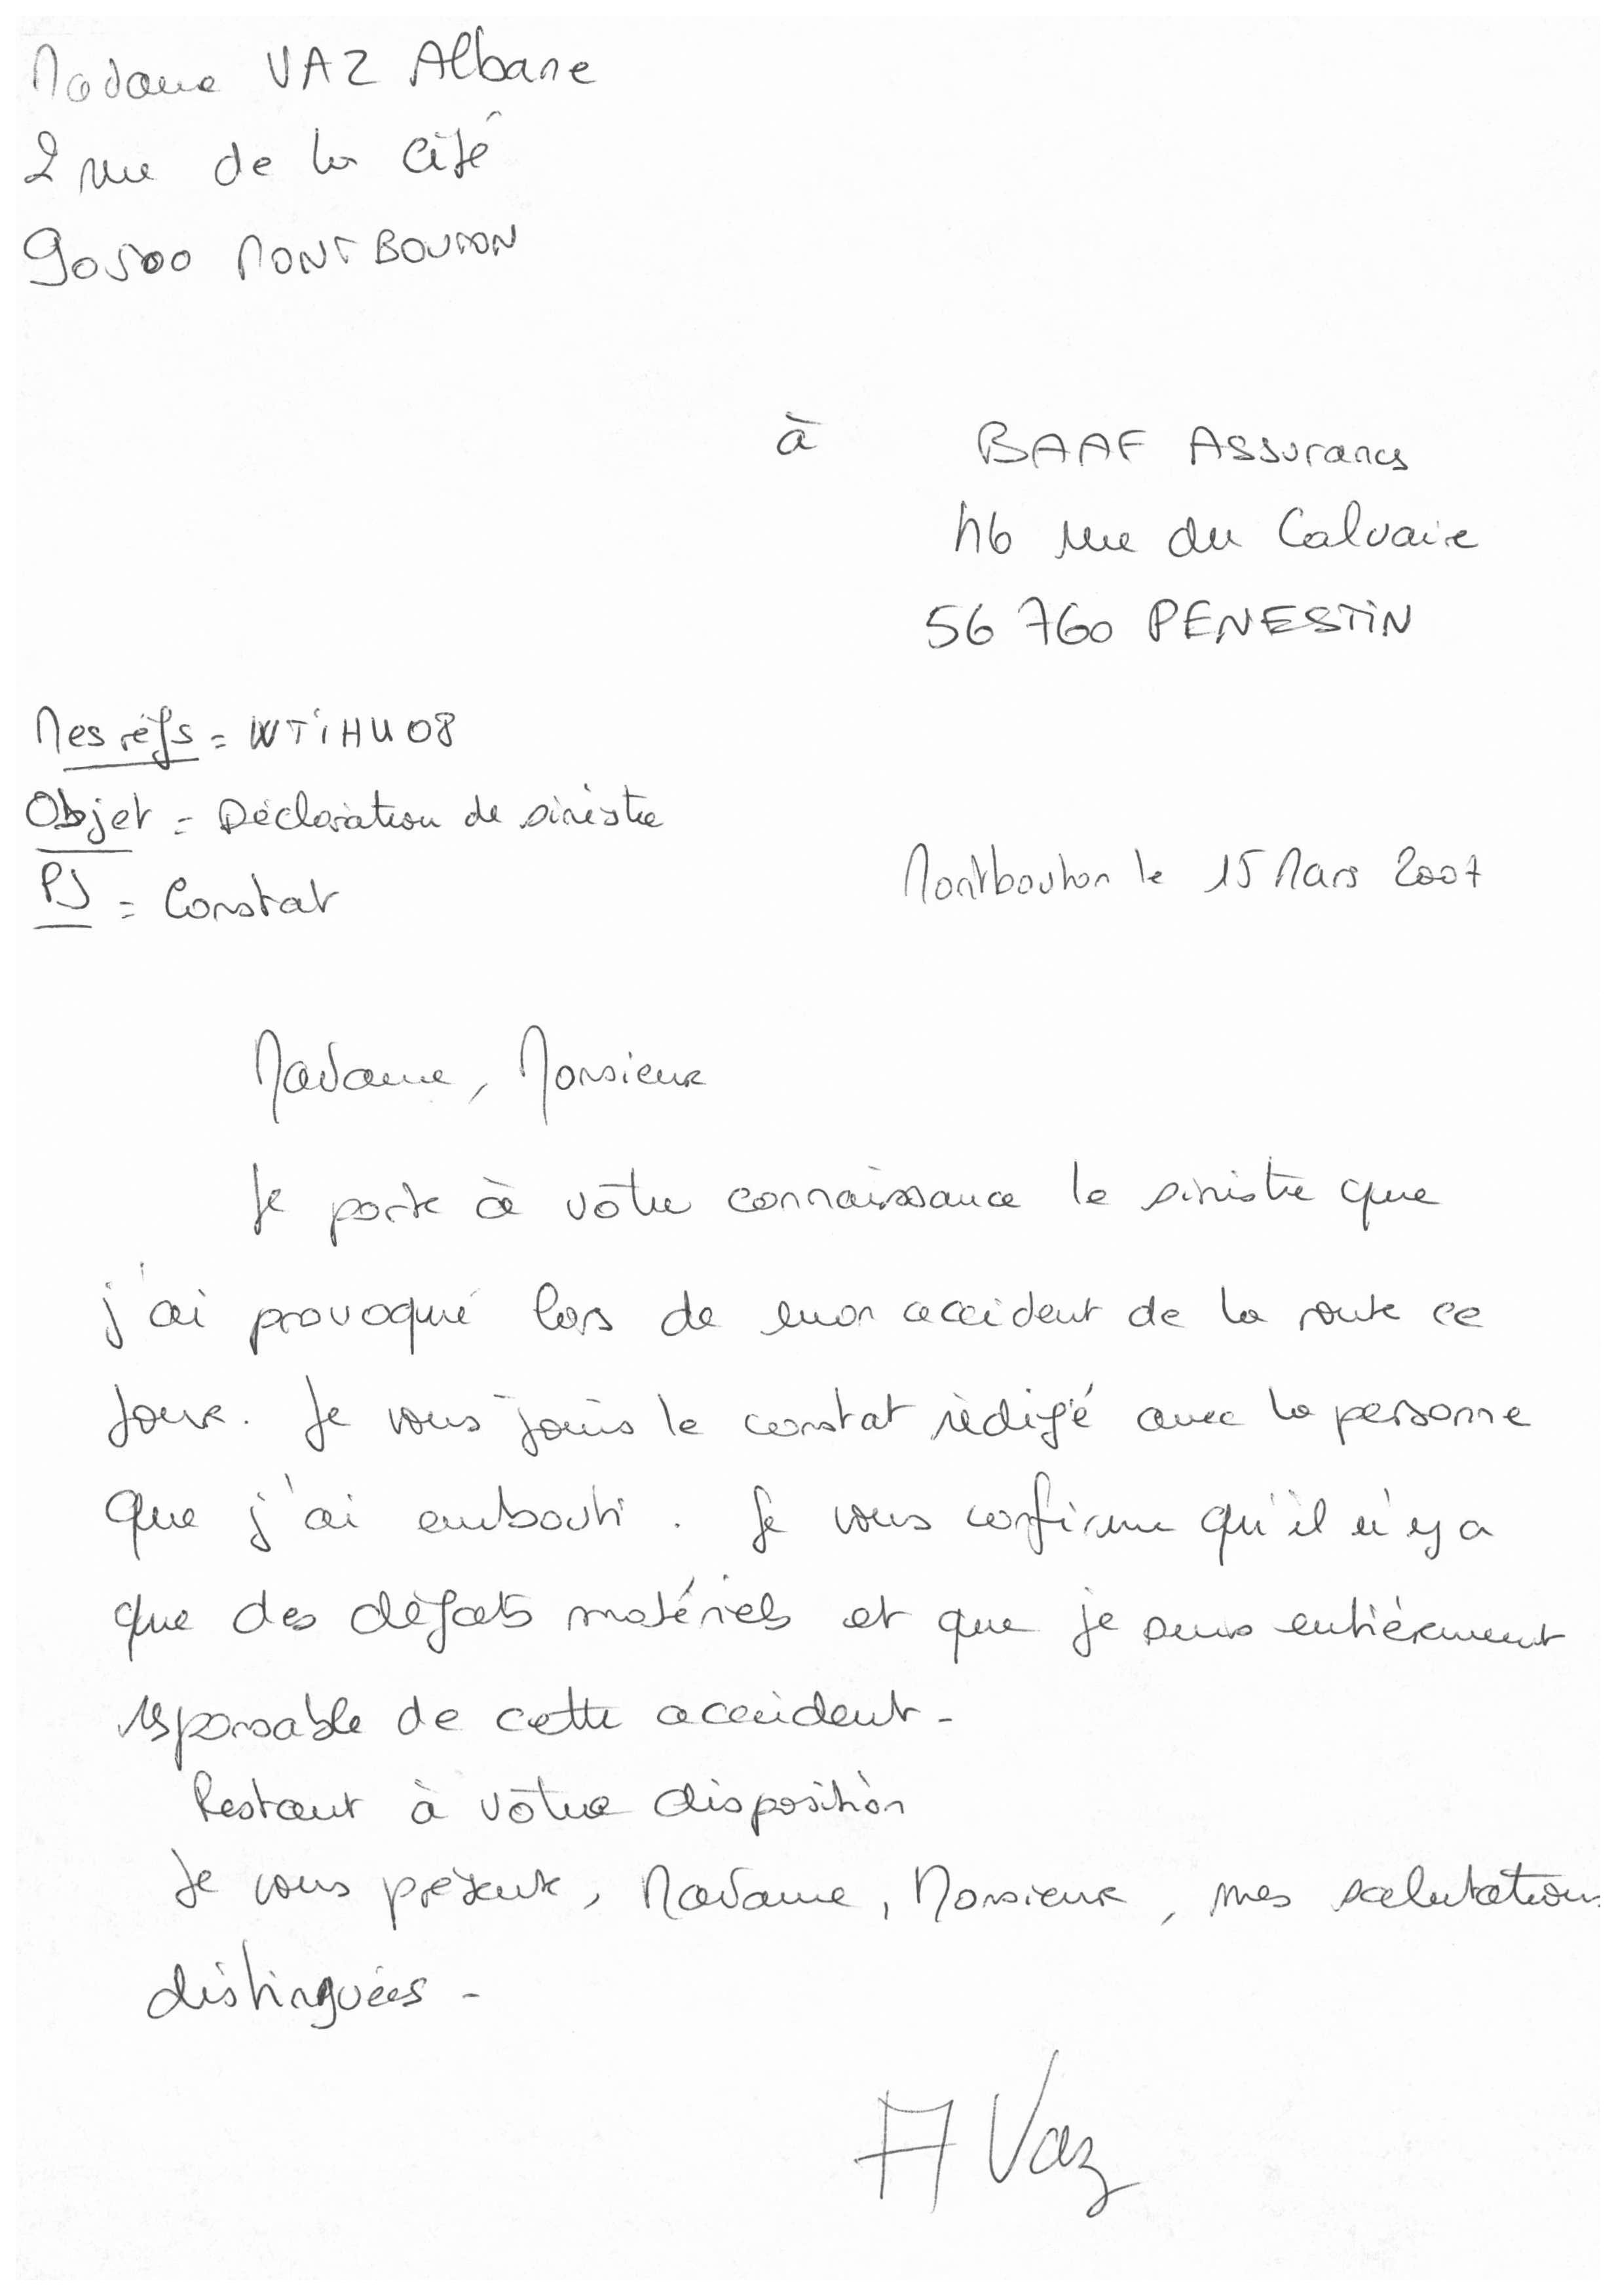 Madame VAZ Albane
2 rue de la Cité
90500 MONTBOUTON
à BAAF Assurances
46 rue du Calvaire
56 760 PENESTIN
Mes réfs = WTiHU08
Objet = Déclaration de sinistre
PJ = Constat
Montbouton le 15 Mars 2007
Madame, Monsieur
Je porte à vôtre connaissance le sinistre que
j'ai provoqué lors de mon accident de la route ce
jour. Je vous joins le constat rédigé avec la personne
que j'ai embouti. Je vous confirme qu'il n'y a
que des dégats matériels et que je suis entièrement
responsable de cette accident.
Restant à vôtre disposition
Je vous présente, Madame, Monsieur, mes salutations
distinguées.
A Vaz